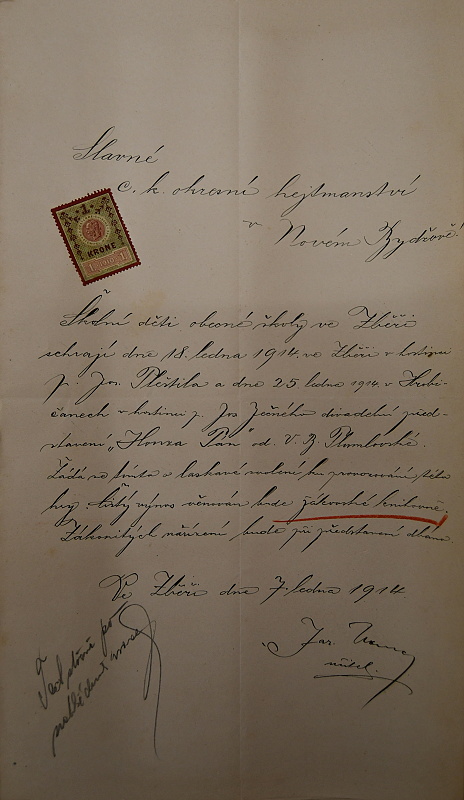 Slavné
c. k. okresní hejtmanství
v Novém Bydžově!
KRONE
1 1
Školní děti obecné školy ve Zběři
sehrají dne 18. ledna 1914. ve Zběři v hostinci
p. Jos. Pleštila a dne 25 ledna 1914. v Hrobi-
čanech v hostinci p. Jos Ječného divadelní před-
stavení „Honza Pán" od V. B. Plumlovské.
Žádá se tímto o laskavé svolení ku provozování této
hry. Čistý výnos věnován bude žákovské knihovně.
Zákonitých nařízení bude při představení dbáno.
Ve Zběři dne 7. ledna 1914.
Jar.
učitel.
po